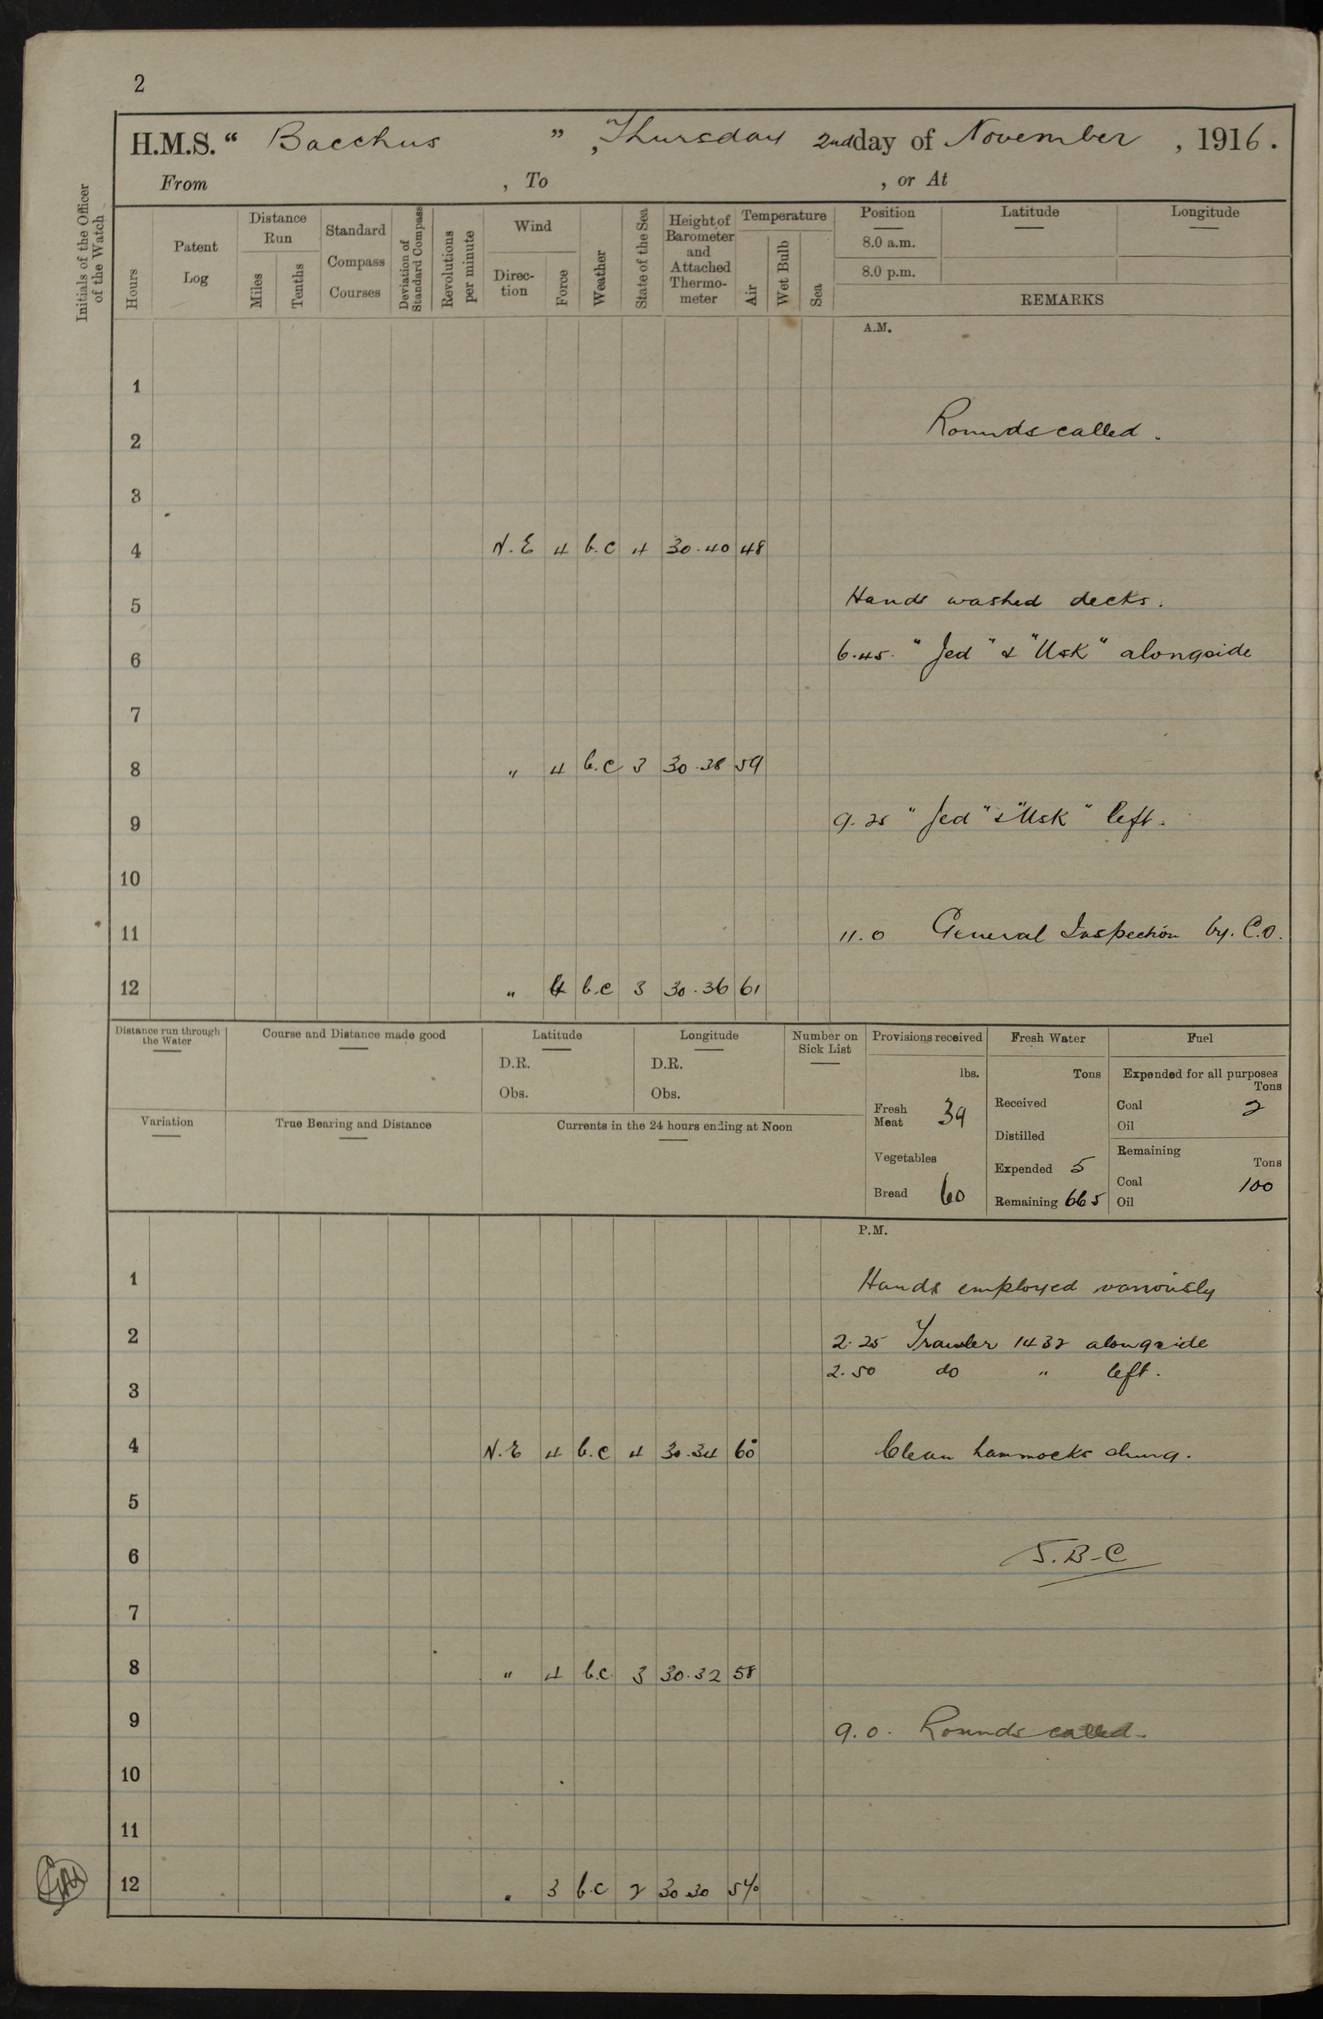 2
H.M.S. “ Bacchus ” , Thursday 2nd day of November , 1916.
From , To , or At
Initials of the Officer of the Watch
Hours
Patent Log
Distance Run
Miles
Tenths
Standard Compass Courses
Deviation of Standard Compass
Revolutions per minute
Wind
Direc-tion
Force
Weather
State of the Sea
Height of Barometer and Attached Thermo-meter
Temperature
Air
Wet Bulb
Sea
Position Latitude Longitude
8.0 a.m.
8.0 p.m.
REMARKS
A.M.
1
2 Rounds called.
3
4 N.E 4 b.c 4 30.40 48
5 Hands washed decks.
6 6.45. "Jed" & "Usk" alongside
7
8 " 4 b.c 3 30.38 59
9 9.25 "Jed" & "Usk" left.
10
11 11.0 General Inspection by. C.O.
12 " 4 b.c 3 30.36 61
Distance run through the Water
Course and Distance made good
Latitude
D.R.
Obs.
Longitude
D.R.
Obs.
Number on Sick List
Variation
True Bearing and Distance
Currents in the 24 hours ending at Noon
Provisions received
lbs.
Fresh Meat 39
Vegetables
Bread 60
Fresh Water
Tons
Received
Distilled
Expended 5
Remaining 665
Fuel
Expended for all purposes
Tons
Coal 2
Oil
Remaining
Tons
Coal 100
Oil
P.M.
1 Hands employed variously
2 2.25 Trawler 1432 alongside
2.50 do " left.
3
4 N.E 4 b.c 4 30.34 60 Clean hammocks slung.
5
6 S.B-C
7
8 " 4 b.c. 3 30.32 58
9 9.0. Rounds called.
10
11
12 . 3 b.c 2 30 30